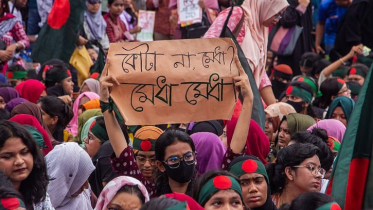 কোটা না মেধা?
মেধা মেধা